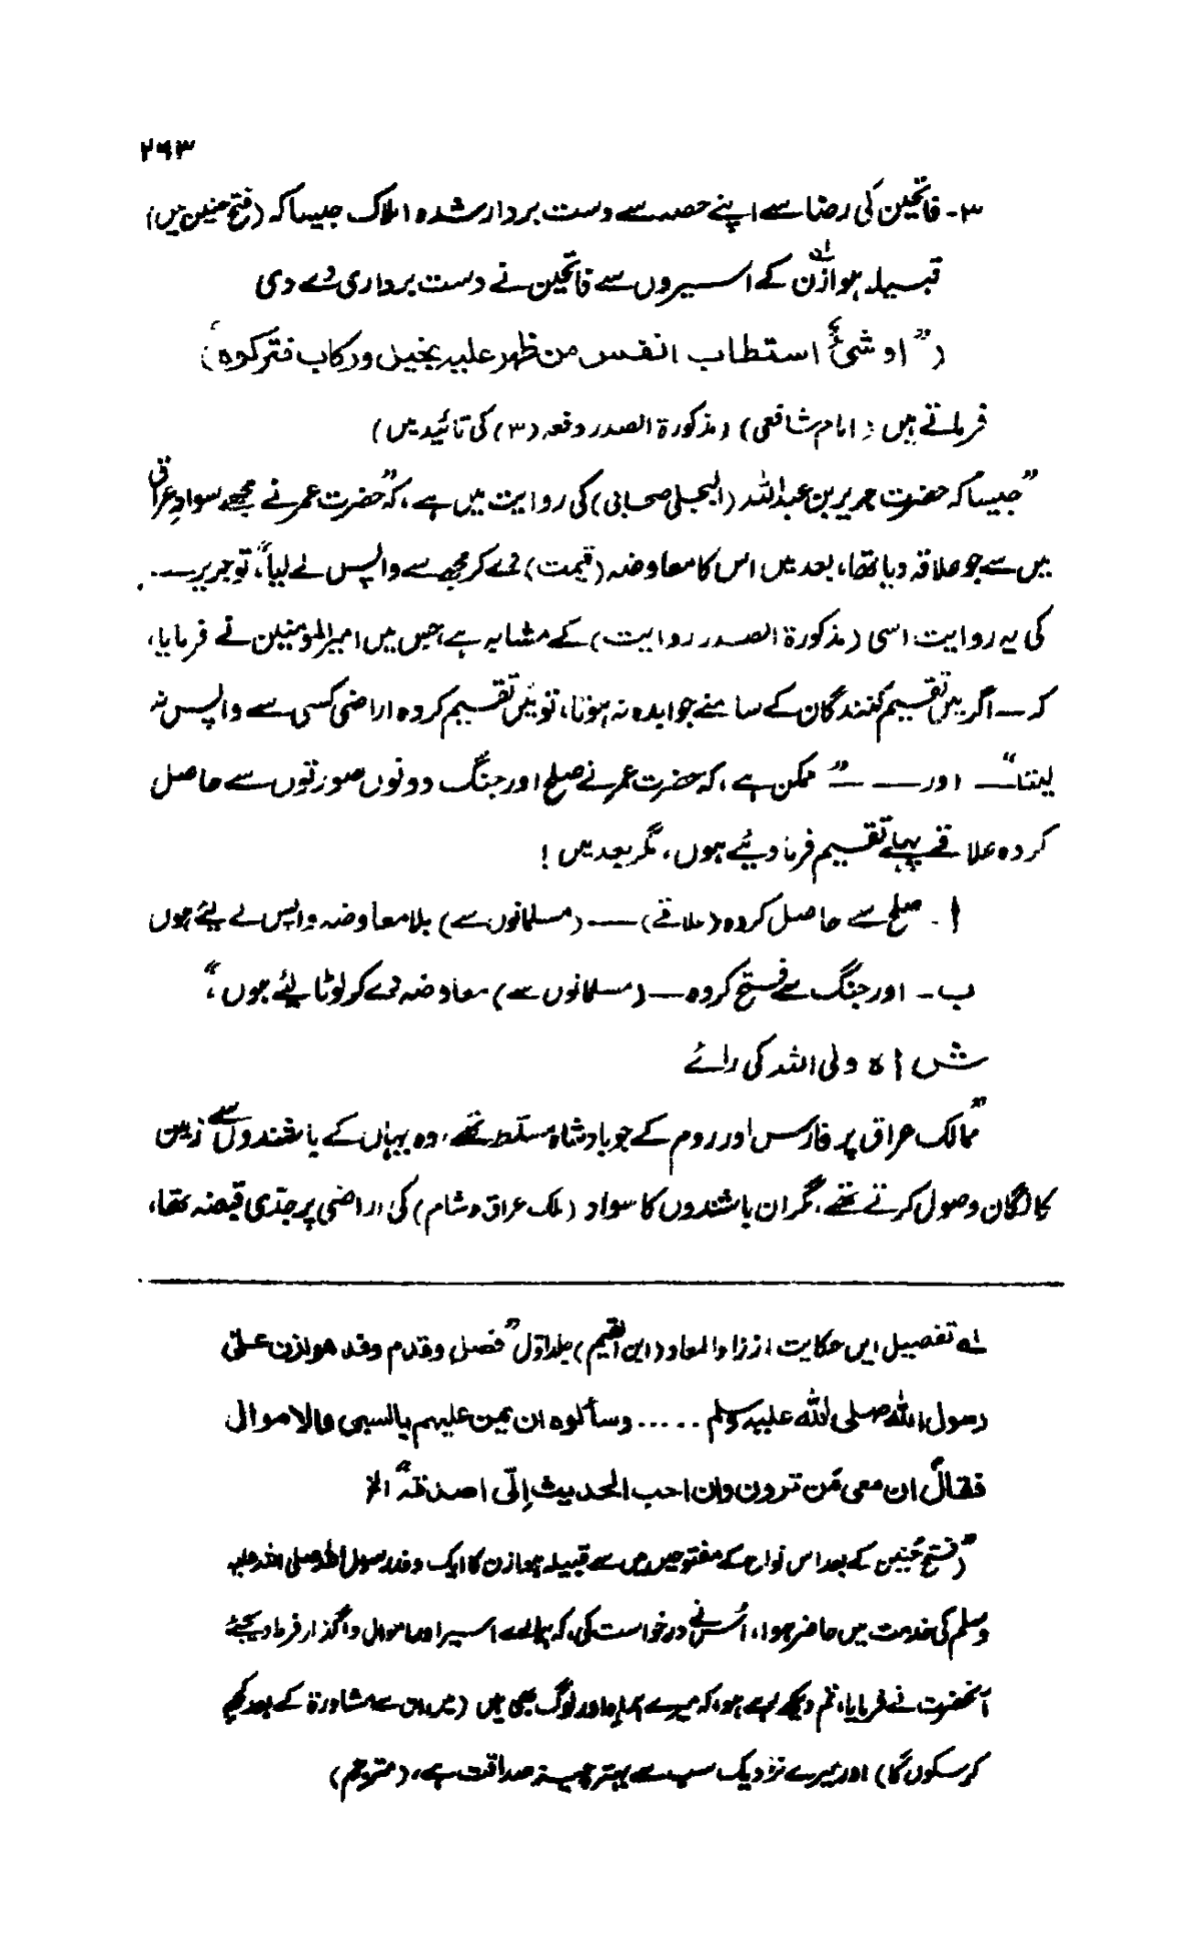 ۲۶۳
۳۔ فاتحین کی رضا سے اپنے حصہ سے دست بردار شدہ املاک جیسا کہ (فتح حنین میں)
قبیلہ ہوازن کے اسیروں سے فاتحین نے دست برداری دے دی
(”او شئ استطاب انفس من ظهر علیه بخیل ورکاب فترکوه“)
فرماتے ہیں (امام شافعی) (مذکورۃ الصدر دفعہ (۳) کی تائید میں)
”جیسا کہ حضرت جریر بن عبداللہ (البجلی صحابی) کی روایت میں ہے، کہ ”حضرت عمر نے مجھے سوادِ عراق
میں سے جو علاقہ دیا تھا، بعد میں اس کا معاوضہ (قیمت) دے کر مجھ سے واپس لے لیا“، تو جریر ــــ
کی یہ روایت اسی (مذکورۃ الصدر روایت) کے مشابہ ہے، جس میں امیر المومنین نے فرمایا،
کہ ــ اگر میں تقسیم کنندگان کے سامنے جوابدہ نہ ہوتا، تو میں تقسیم کردہ اراضی کسی سے واپس نہ
لیتا“ ــــ اور ــــ ــــ ” ممکن ہے، کہ حضرت عمر نے صلح اور جنگ دونوں صورتوں سے حاصل
کردہ علاقے پہلے تقسیم فرما دیئے ہوں، مگر بعد میں !
ا۔ صلح سے حاصل کردہ (علاقے) ــــ (مسلمانوں سے) بلا معاوضہ واپس لے لیئے ہوں
ب۔ اور جنگ سے فتح کردہ ــــ (مسلمانوں سے) معاوضہ دے کر لوٹا لیئے ہوں،“
شاہ ولی اللہ کی رائے
”ممالک عراق پر فارس اور روم کے جو بادشاہ مسلط تھے، وہ یہاں کے باشندوں سے زمین
کا لگان وصول کرتے تھے، مگر ان باشندوں کا سواد (ملک عراق و شام) کی اراضی پر جدّی قبضہ تھا،
لے تفصیل ایں حکایت از زاد المعاد (ابن القیم) جلد اوّل ”فصل وقدم وفد هوازن علی
رسول الله صلی الله علیه وسلم ..... وسألوه ان یمن علیهم بالسبی والاموال
فقال ان معی مَن ترون وان احب الحدیث اِلیّ اصدقه“ الخ
”(فتح حُنین کے بعد اس نواح کے مفتوحین میں سے قبیلہ ہوازن کا ایک وفد رسول اللہ صلی اللہ علیہ
وسلم کی خدمت میں حاضر ہوا، اُس نے درخواست کی، کہ ہمارے اسیر اور اموال واگذار فرما دیجئے
آنحضرت نے فرمایا، تم دیکھ رہے ہو، کہ میرے ہمراہ اور لوگ بھی ہیں (میں ان سے مشاورۃ کے بعد کچھ
کر سکوں گا) اور میرے نزدیک سب سے بہتر چیز صداقت ہے، (مترجم)